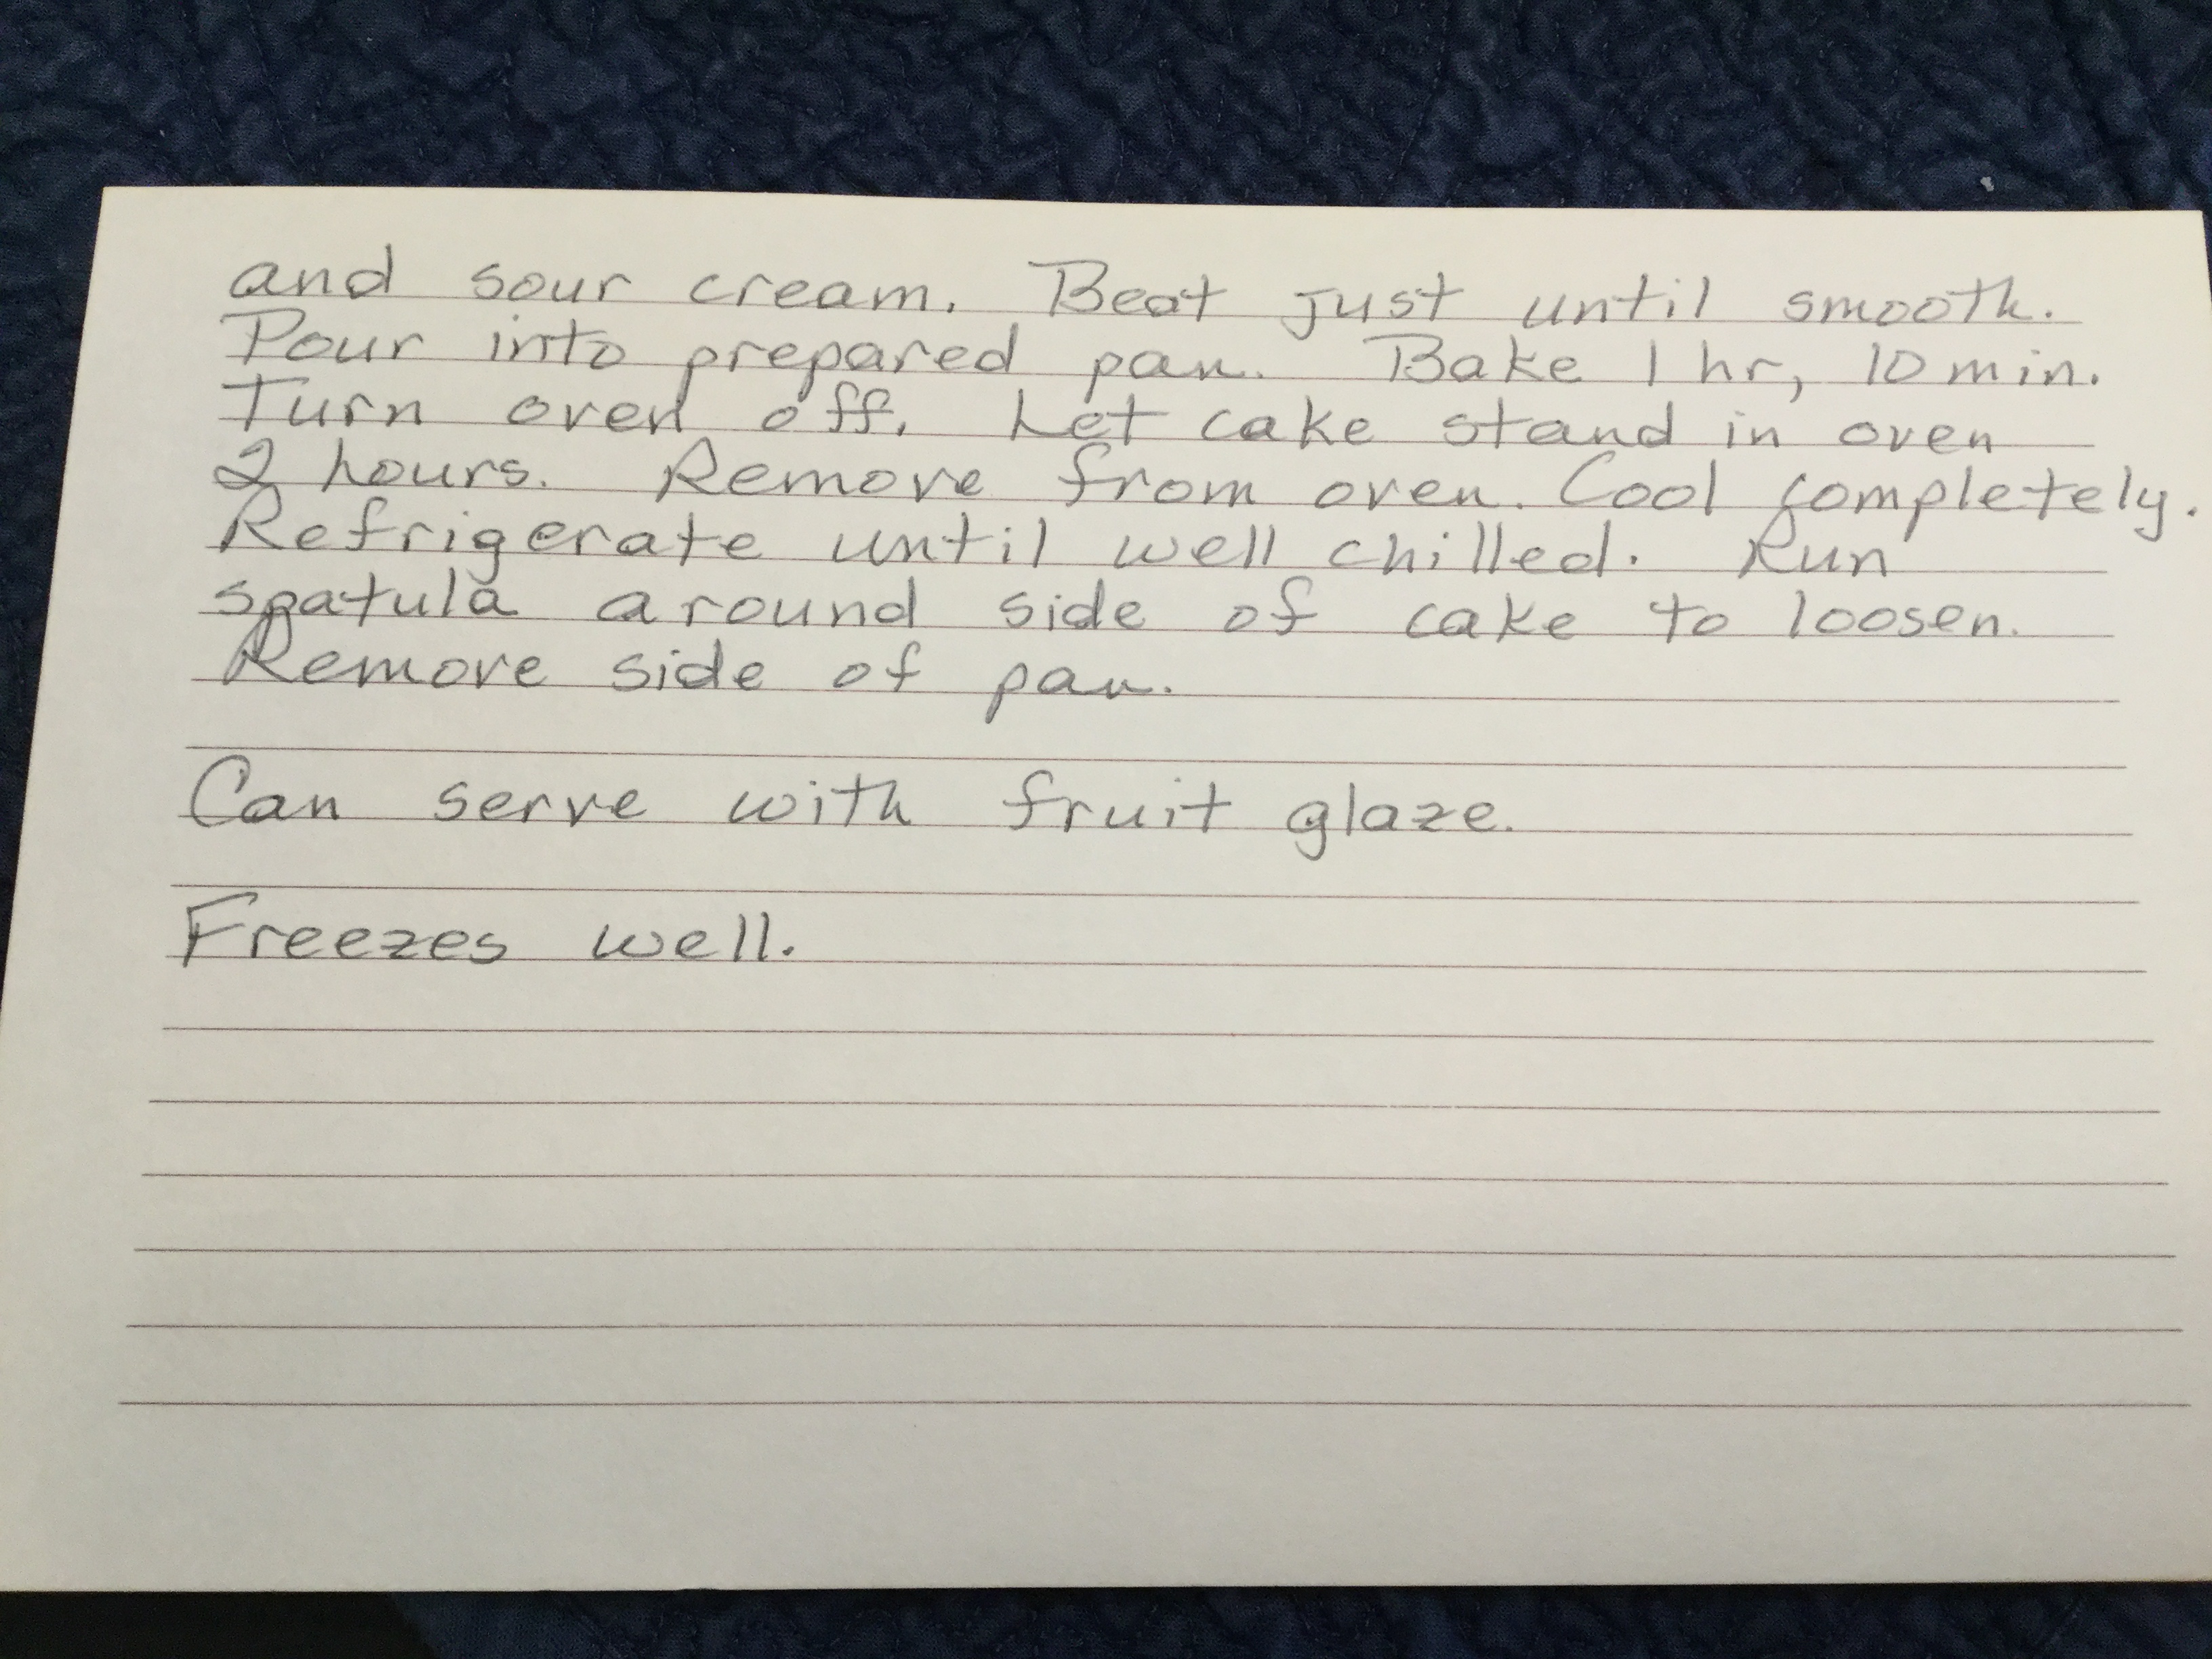 and sour cream. Beat just until smooth.
Pour into prepared pan. Bake 1 hr, 10 min.
Turn oven off. Let cake stand in oven
2 hours. Remove from oven. Cool completely.
Refrigerate until well chilled. Run
spatula around side of cake to loosen.
Remove side of pan.
Can serve with fruit glaze.
Freezes well.